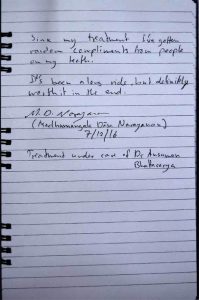 Since my treatment I've gotten
random compliments from people
on my teeth.
It's been a long ride, but definitely
worth it in the end.
M. D. Narayanan
(Madhumangala Dāsa Narayanan)
7/12/16
Treatment under care of Dr Ansuman
Bhattacarya